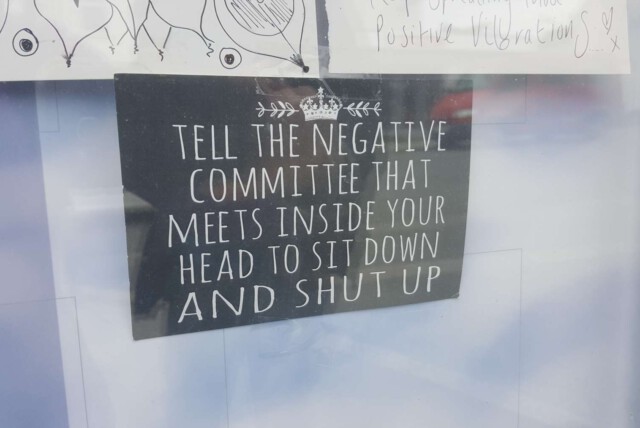 Positive Vibrations
TELL THE NEGATIVE
COMMITTEE THAT
MEETS INSIDE YOUR
HEAD TO SIT DOWN
AND SHUT UP